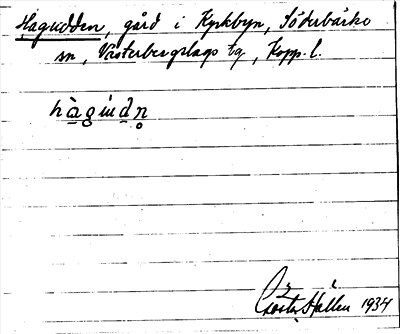 Hagudden, gård i Kyrkbyn, Söderbärke
sn, Västerbergslags tg, Kopp. l.
hàgu̇dn̥
Gösta Hallen 1934